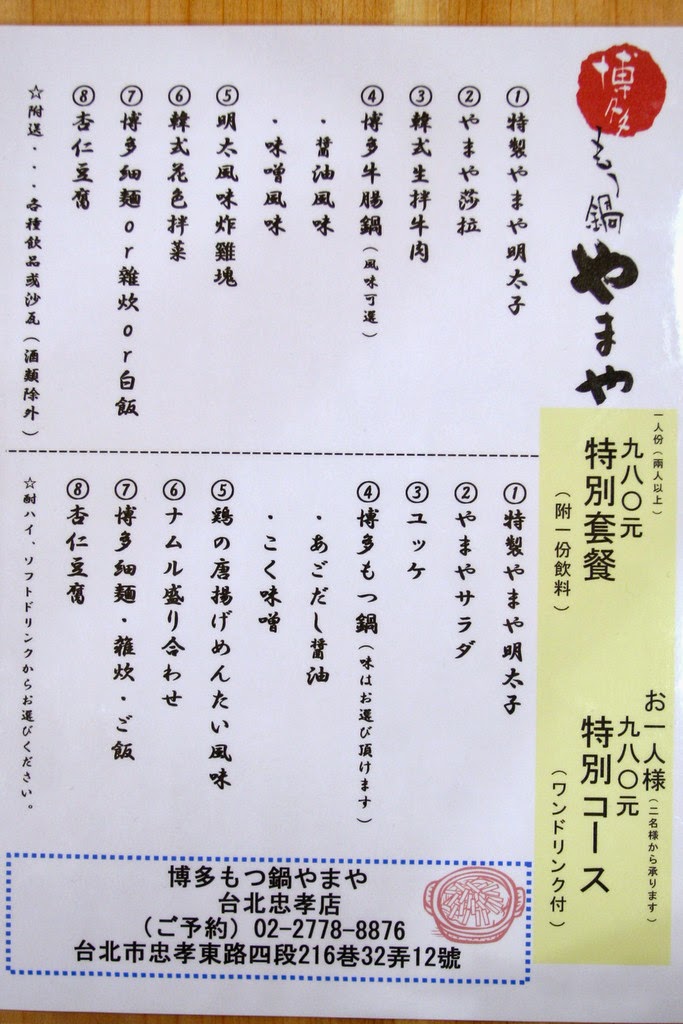 博多
もつ鍋
やまや
一人份(兩人以上)
九八〇元
特別套餐
(附一份飲料)
お一人様(二名様から承ります)
九八〇元
特別コース
(ワンドリンク付)
①特製やまや明太子
②やまや莎拉
③韓式生拌牛肉
④博多牛腸鍋(風味可選)
・醬油風味
・味噌風味
⑤明太風味炸雞塊
⑥韓式花色拌菜
⑦博多細麵or雜炊or白飯
⑧杏仁豆腐
☆附送・・・各種飲品或沙瓦(酒類除外)
①特製やまや明太子
②やまやサラダ
③ユッケ
④博多もつ鍋(味はお選び頂けます)
・あごだし醤油
・こく味噌
⑤鶏の唐揚げめんたい風味
⑥ナムル盛り合わせ
⑦博多細麵・雑炊・ご飯
⑧杏仁豆腐
☆酎ハイ、ソフトドリンクからお選びください。
博多もつ鍋やまや
台北忠孝店
(ご予約) 02-2778-8876
台北市忠孝東路四段216巷32弄12號